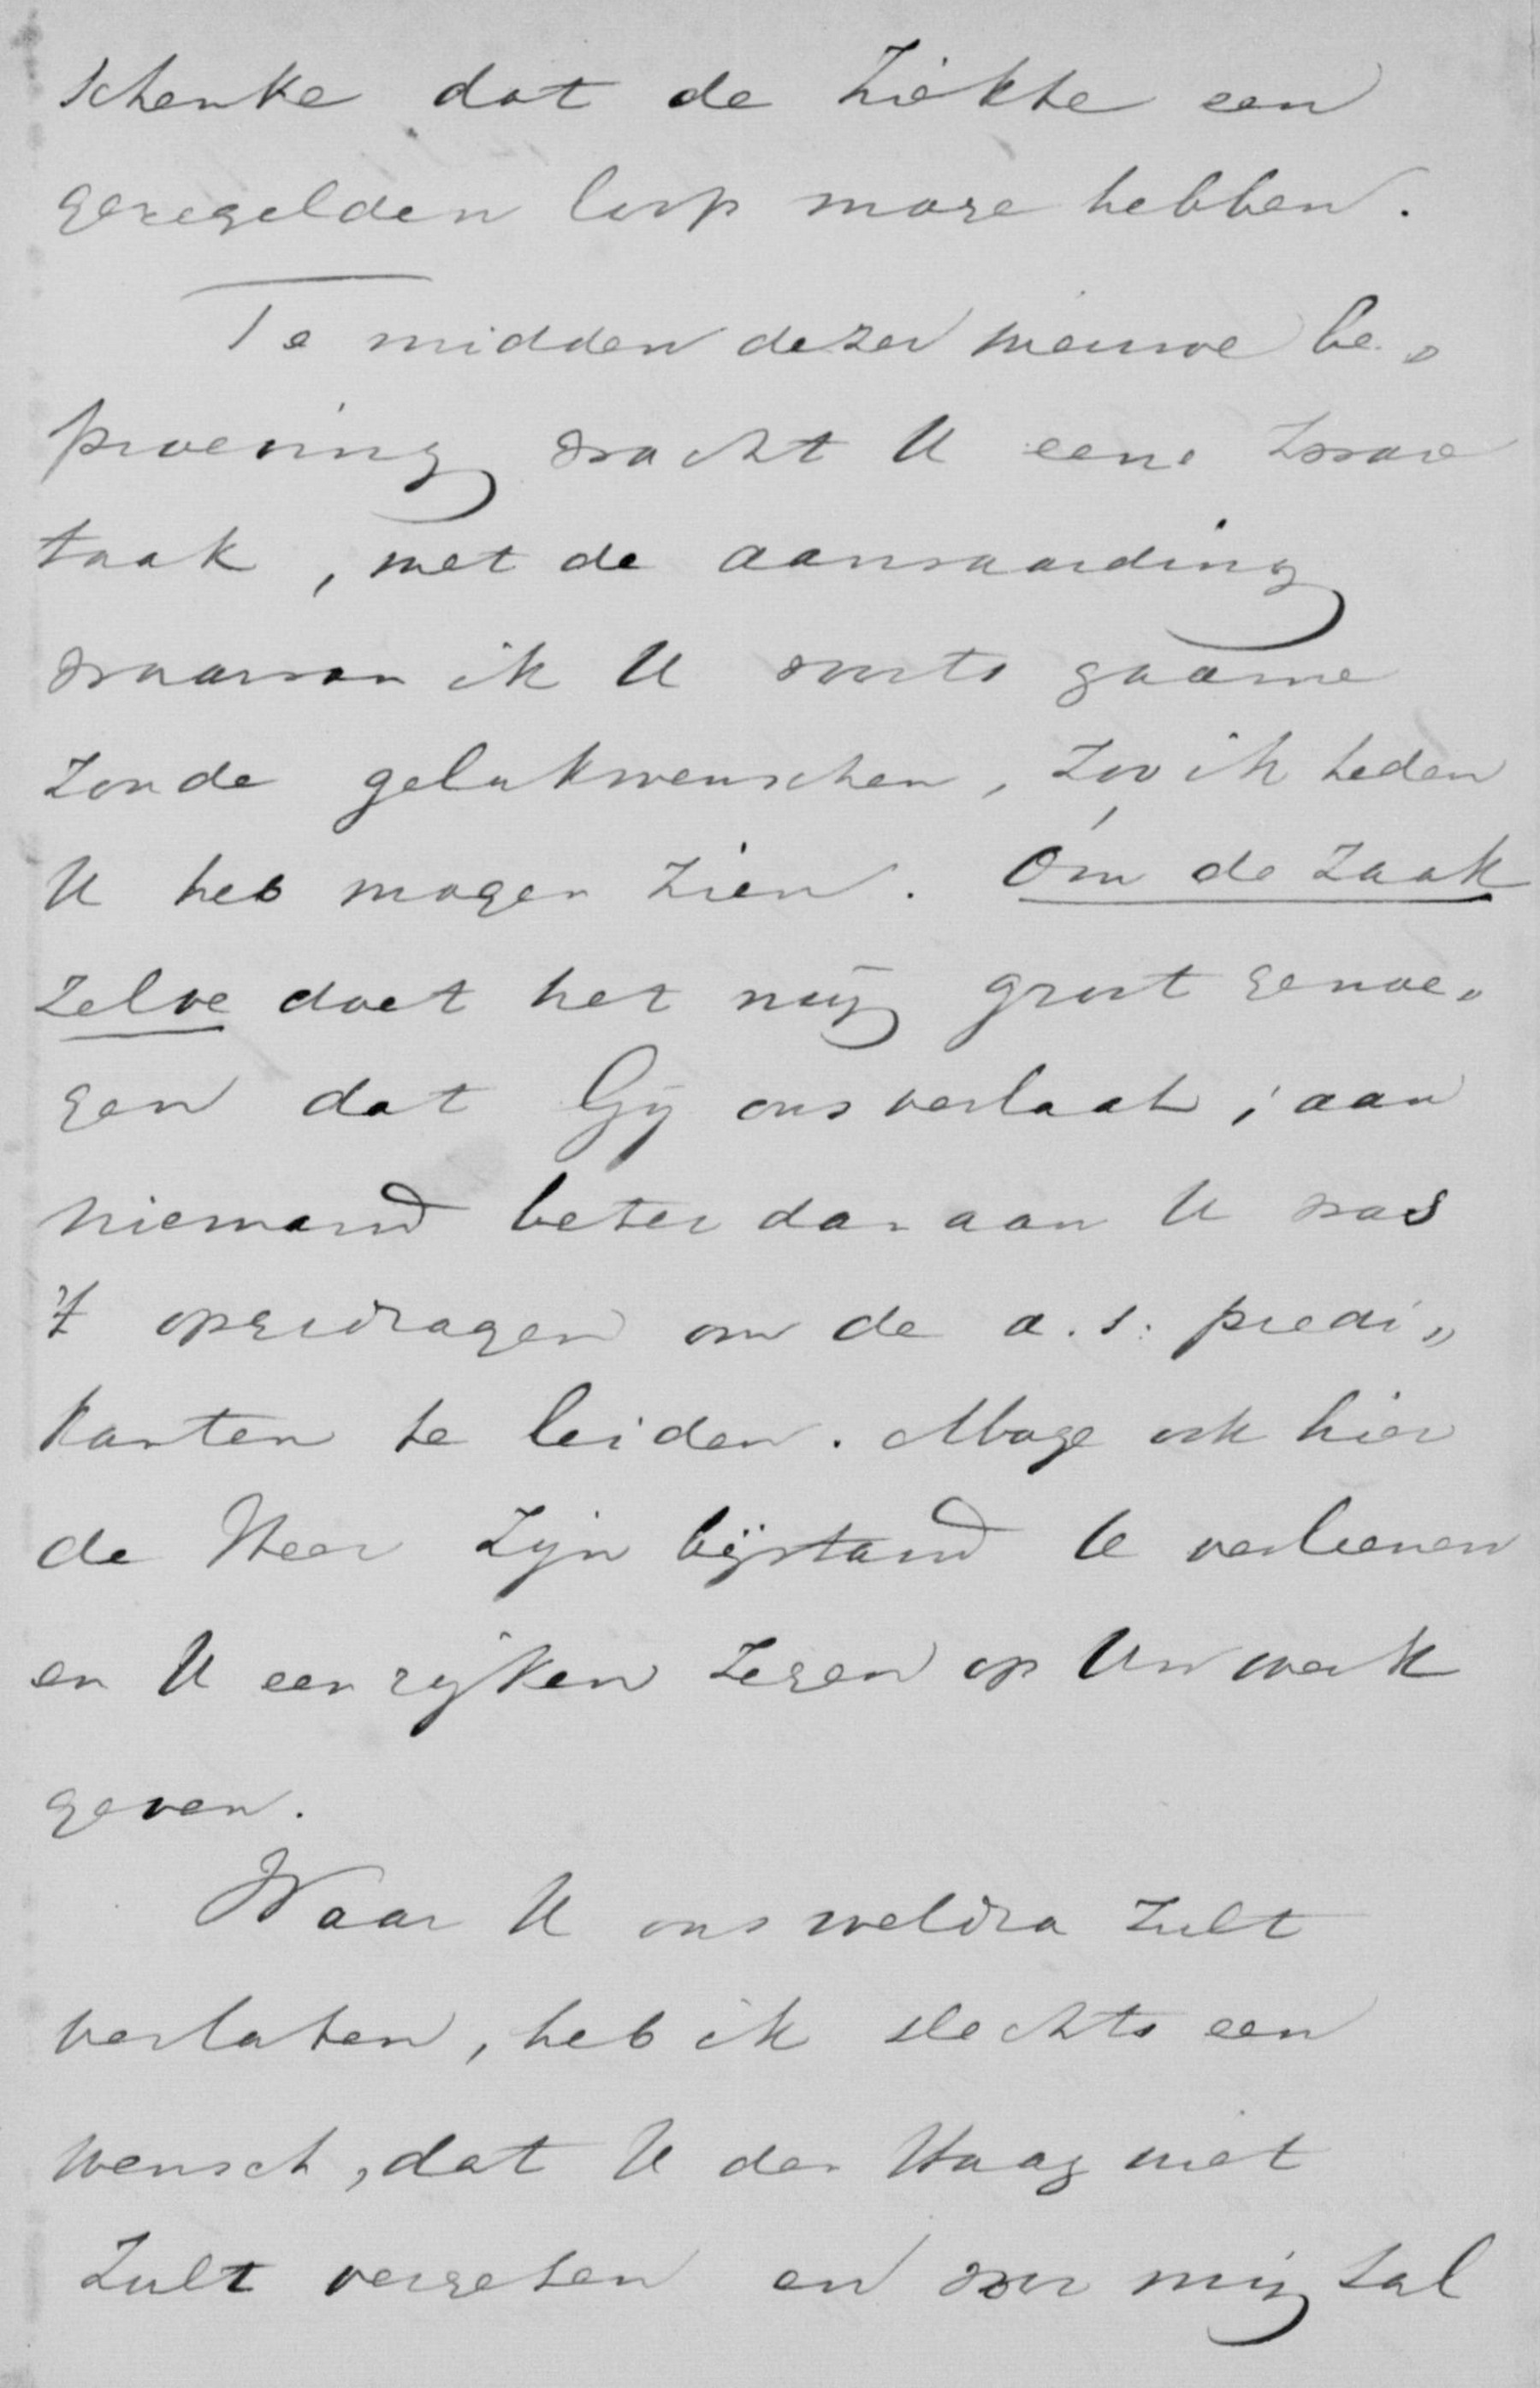 schenke dat de ziekte een
geregelden loop moge hebben.
Te midden dezer nieuwe be„
proeving wacht U eene zware
taak, met de aanvaarding
waarvan ik U reeds gaarne
zoude gelukwenschen, zoo ik heden
U heb mogen zien. Óm de zaak
zelve doet het mij groot genoe„
gen dat Gij ons verlaat; aan
niemand beter dan aan U was
't opgedragen om de a.s. predi„
kanten te leiden. Moge ook hier
de Heer Zijn bijstand U verleenen
en U een rijken zegen op Uw werk
geven.
Waar U ons weldra zult
verlaten, heb ik slechts een
wensch, dat U den Haag niet
zult vergeten en voor mij zal